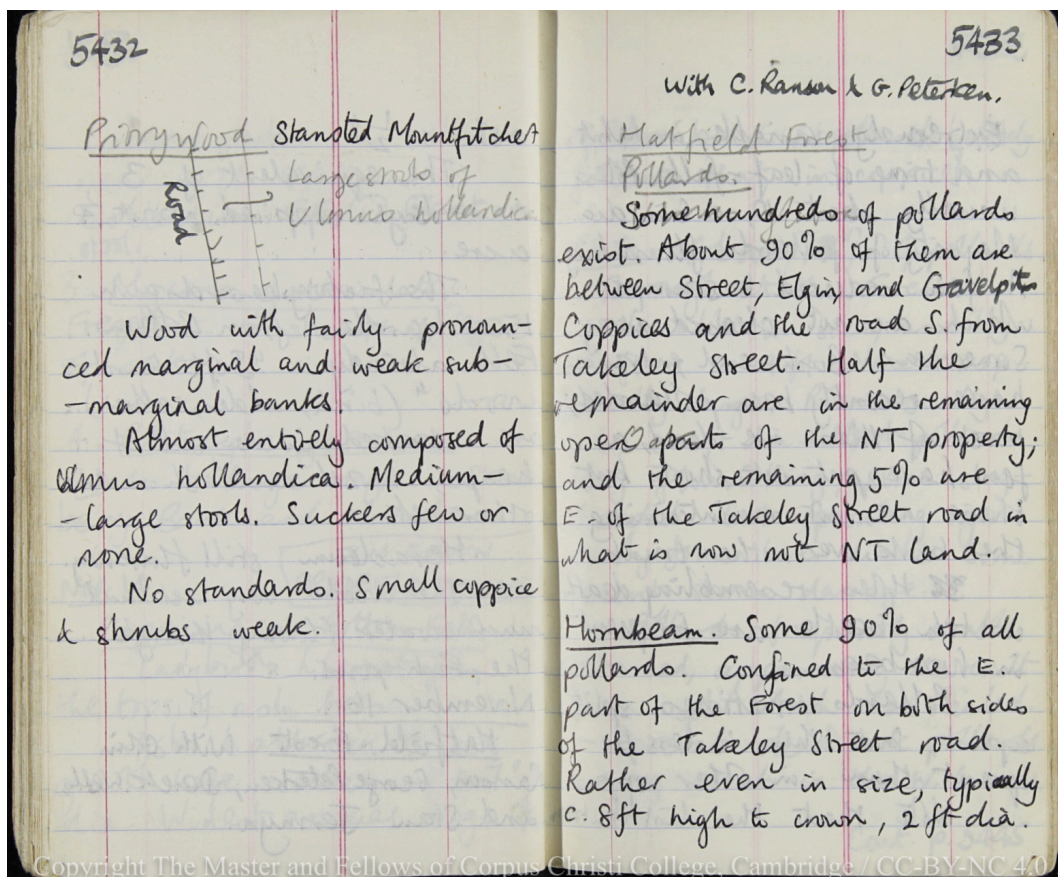 5432
Pirrywood Stansted Mountfitchet
Road
Large stools of
Ulmus hollandica
Wood with fairly pronoun-
ced marginal and weak sub-
-marginal banks.
Almost entirely composed of
Ulmus hollandica. Medium-
-large stools. Suckers few or
none.
No standards. Small coppice
& shrubs weak.
5433
With C. Ranson & G. Peterken.
Hatfield Forest
Pollards.
Some hundreds of pollards
exist. About 90% of them are
between Street, Elgin, and Gravelpit
Coppices and the road S. from
Takeley Street. Half the
remainder are in the remaining
open parts of the NT property;
and the remaining 5% are
E of the Takeley Street road in
what is now not NT land.
Hornbeam. Some 90% of all
pollards. Confined to the E.
part of the Forest on both sides
of the Takeley Street road.
Rather even in size, typically
c. 8ft high to crown, 2 ft dia.
Copyright The Master and Fellows of Corpus Christi College, Cambridge / CC-BY-NC 4.0